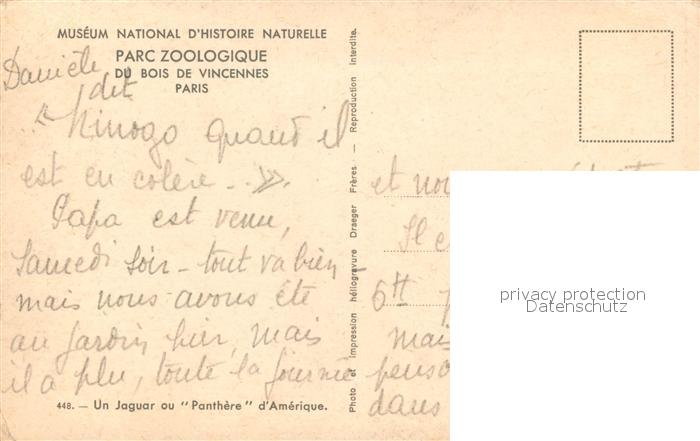 MUSÉUM NATIONAL D'HISTOIRE NATURELLE
PARC ZOOLOGIQUE
DU BOIS DE VINCENNES
PARIS
Danièle
dit
" quand il
est en colère - ».
Papa est venu,
Samedi soir - tout va bien -
mais nous avons été
au jardin hier, mais
il a plu, toute la journée
448. — Un Jaguar ou "Panthère" d'Amérique.
Photo et impression héliogravure Draeger Frères — Reproduction interdite.
et
Il
mais
dans
privacy protection
Datenschutz